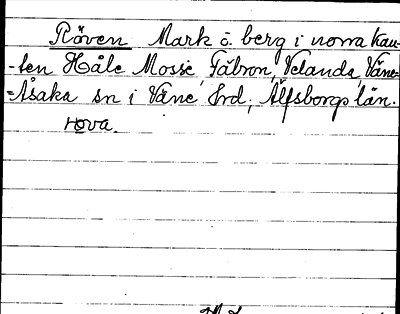 Röven Mark o. berg i norra kan-
-ten Håle Mosse Fäbron, Velanda, Väne-
=Åsaka sn i Väne Hrd, Älfsborgs län.
rova.